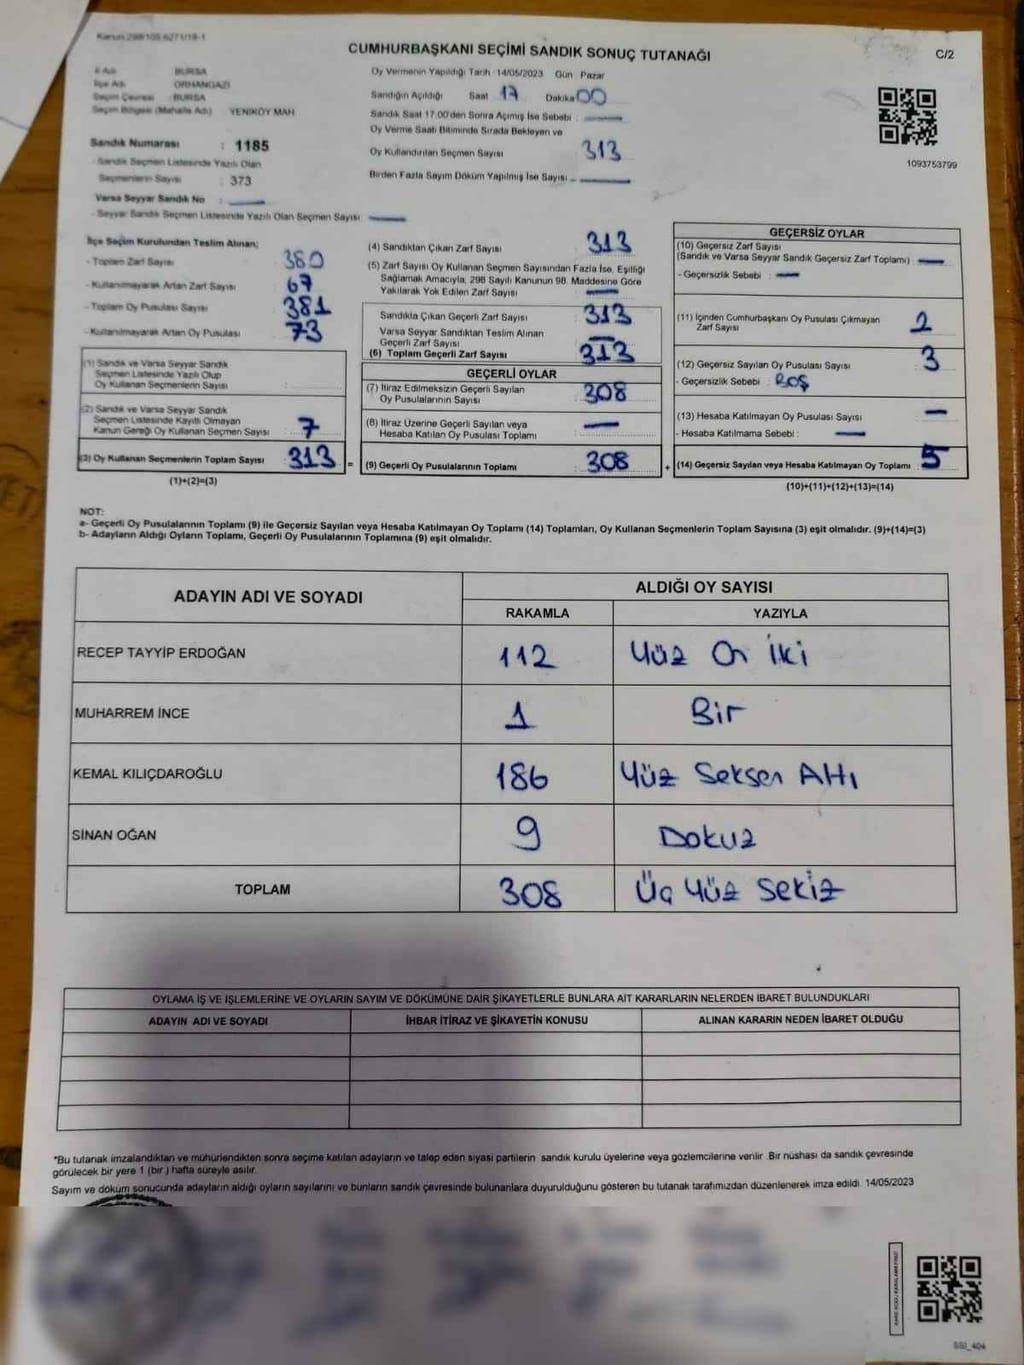 Kanun:298/105,6271/19-1
CUMHURBAŞKANI SEÇİMİ SANDIK SONUÇ TUTANAĞI
C/2
İl Adı : BURSA
İlçe Adı : ORHANGAZİ
Seçim Çevresi : BURSA
Seçim Bölgesi (Mahalle Adı) : YENİKÖY MAH
Sandık Numarası : 1185
- Sandık Seçmen Listesinde Yazılı Olan
Seçmenlerin Sayısı : 373
Varsa Seyyar Sandık No :
- Seyyar Sandık Seçmen Listesinde Yazılı Olan Seçmen Sayısı :
Oy Vermenin Yapıldığı Tarih :14/05/2023 Gün Pazar
Sandığın Açıldığı Saat 17 Dakika 00
Sandık Saat 17.00'den Sonra Açımış İse Sebebi :
Oy Verme Saati Bitiminde Sırada Bekleyen ve
Oy Kullandırılan Seçmen Sayısı 313
Birden Fazla Sayım Döküm Yapılmış İse Sayısı
1093753799
İlçe Seçim Kurulundan Teslim Alınan;
- Toplam Zarf Sayısı : 380
- Kullanılmayarak Artan Zarf Sayısı : 67
- Toplam Oy Pusulası Sayısı : 381
- Kullanılmayarak Artan Oy Pusulası : 73
(1) Sandık ve Varsa Seyyar Sandık
Seçmen Listesinde Yazılı Olup
Oy Kullanan Seçmenlerin Sayısı :
(2) Sandık ve Varsa Seyyar Sandık
Seçmen Listesinde Kayıtlı Olmayan
Kanun Gereği Oy Kullanan Seçmen Sayısı : 7
(3) Oy Kullanan Seçmenlerin Toplam Sayısı : 313 =
(1)+(2)=(3)
(4) Sandıktan Çıkan Zarf Sayısı : 313
(5) Zarf Sayısı Oy Kullanan Seçmen Sayısından Fazla İse, Eşitliği
Sağlamak Amacıyla, 298 Sayılı Kanunun 98. Maddesine Göre
Yakılarak Yok Edilen Zarf Sayısı :
Sandıkla Çıkan Geçerli Zarf Sayısı : 313
Varsa Seyyar Sandıktan Teslim Alınan
Geçerli Zarf Sayısı :
(6) Toplam Geçerli Zarf Sayısı : 313
GEÇERLİ OYLAR
(7) İtiraz Edilmeksizin Geçerli Sayılan
Oy Pusulalarının Sayısı : 308
(8) İtiraz Üzerine Geçerli Sayılan veya
Hesaba Katılan Oy Pusulası Toplamı :
(9) Geçerli Oy Pusulalarının Toplamı : 308 +
GEÇERSİZ OYLAR
(10) Geçersiz Zarf Sayısı
(Sandık ve Varsa Seyyar Sandık Geçersiz Zarf Toplamı) :
- Geçersizlik Sebebi :
(11) İçinden Cumhurbaşkanı Oy Pusulası Çıkmayan
Zarf Sayısı : 2
(12) Geçersiz Sayılan Oy Pusulası Sayısı : 3
- Geçersizlik Sebebi : BOŞ
(13) Hesaba Katılmayan Oy Pusulası Sayısı :
- Hesaba Katılmama Sebebi :
(14) Geçersiz Sayılan veya Hesaba Katılmayan Oy Toplamı : 5
(10)+(11)+(12)+(13)=(14)
NOT:
a- Geçerli Oy Pusulalarının Toplamı (9) ile Geçersiz Sayılan veya Hesaba Katılmayan Oy Toplamı (14) Toplamları, Oy Kullanan Seçmenlerin Toplam Sayısına (3) eşit olmalıdır. (9)+(14)=(3)
b- Adayların Aldığı Oyların Toplamı, Geçerli Oy Pusulalarının Toplamına (9) eşit olmalıdır.
ADAYIN ADI VE SOYADI
ALDIĞI OY SAYISI
RAKAMLA YAZIYLA
RECEP TAYYİP ERDOĞAN 112 Yüz On İki
MUHARREM İNCE 1 Bir
KEMAL KILIÇDAROĞLU 186 Yüz Seksen Altı
SİNAN OĞAN 9 Dokuz
TOPLAM 308 Üç Yüz Sekiz
OYLAMA İŞ VE İŞLEMLERİNE VE OYLARIN SAYIM VE DÖKÜMÜNE DAİR ŞİKAYETLERLE BUNLARA AİT KARARLARIN NELERDEN İBARET BULUNDUKLARI
ADAYIN ADI VE SOYADI İHBAR İTİRAZ VE ŞİKAYETİN KONUSU ALINAN KARARIN NEDEN İBARET OLDUĞU
*Bu tutanak imzalandıktan ve mühürlendikten sonra seçime katılan adayların ve talep eden siyasi partilerin sandık kurulu üyelerine veya gözlemcilerine verilir .Bir nüshası da sandık çevresinde
görülecek bir yere 1 (bir ) hafta süreyle asılır.
Sayım ve döküm sonucunda adayların aldığı oyların sayılarını ve bunların sandık çevresinde bulunanlara duyurulduğunu gösteren bu tutanak tarafımızdan düzenlenerek imza edildi. 14/05/2023